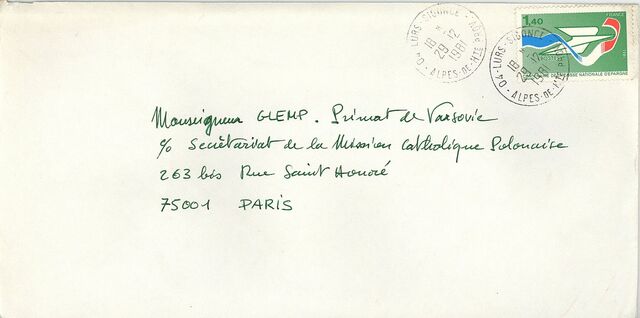 04-LURS-SIGONCE
18 H
29-12
1981
ALPES-DE-HTE PROV.
04-LURS-SIGONCE
18 H
29-12
1981
ALPES-DE-HTE
1,40
FRANCE
POSTES
CAISSE NATIONALE D'EPARGNE
Monseigneur GLEMP. Primat de Varsovie
c/o Secrétariat de la Mission Catholique Polonaise
263 bis Rue Saint Honoré
75001 PARIS